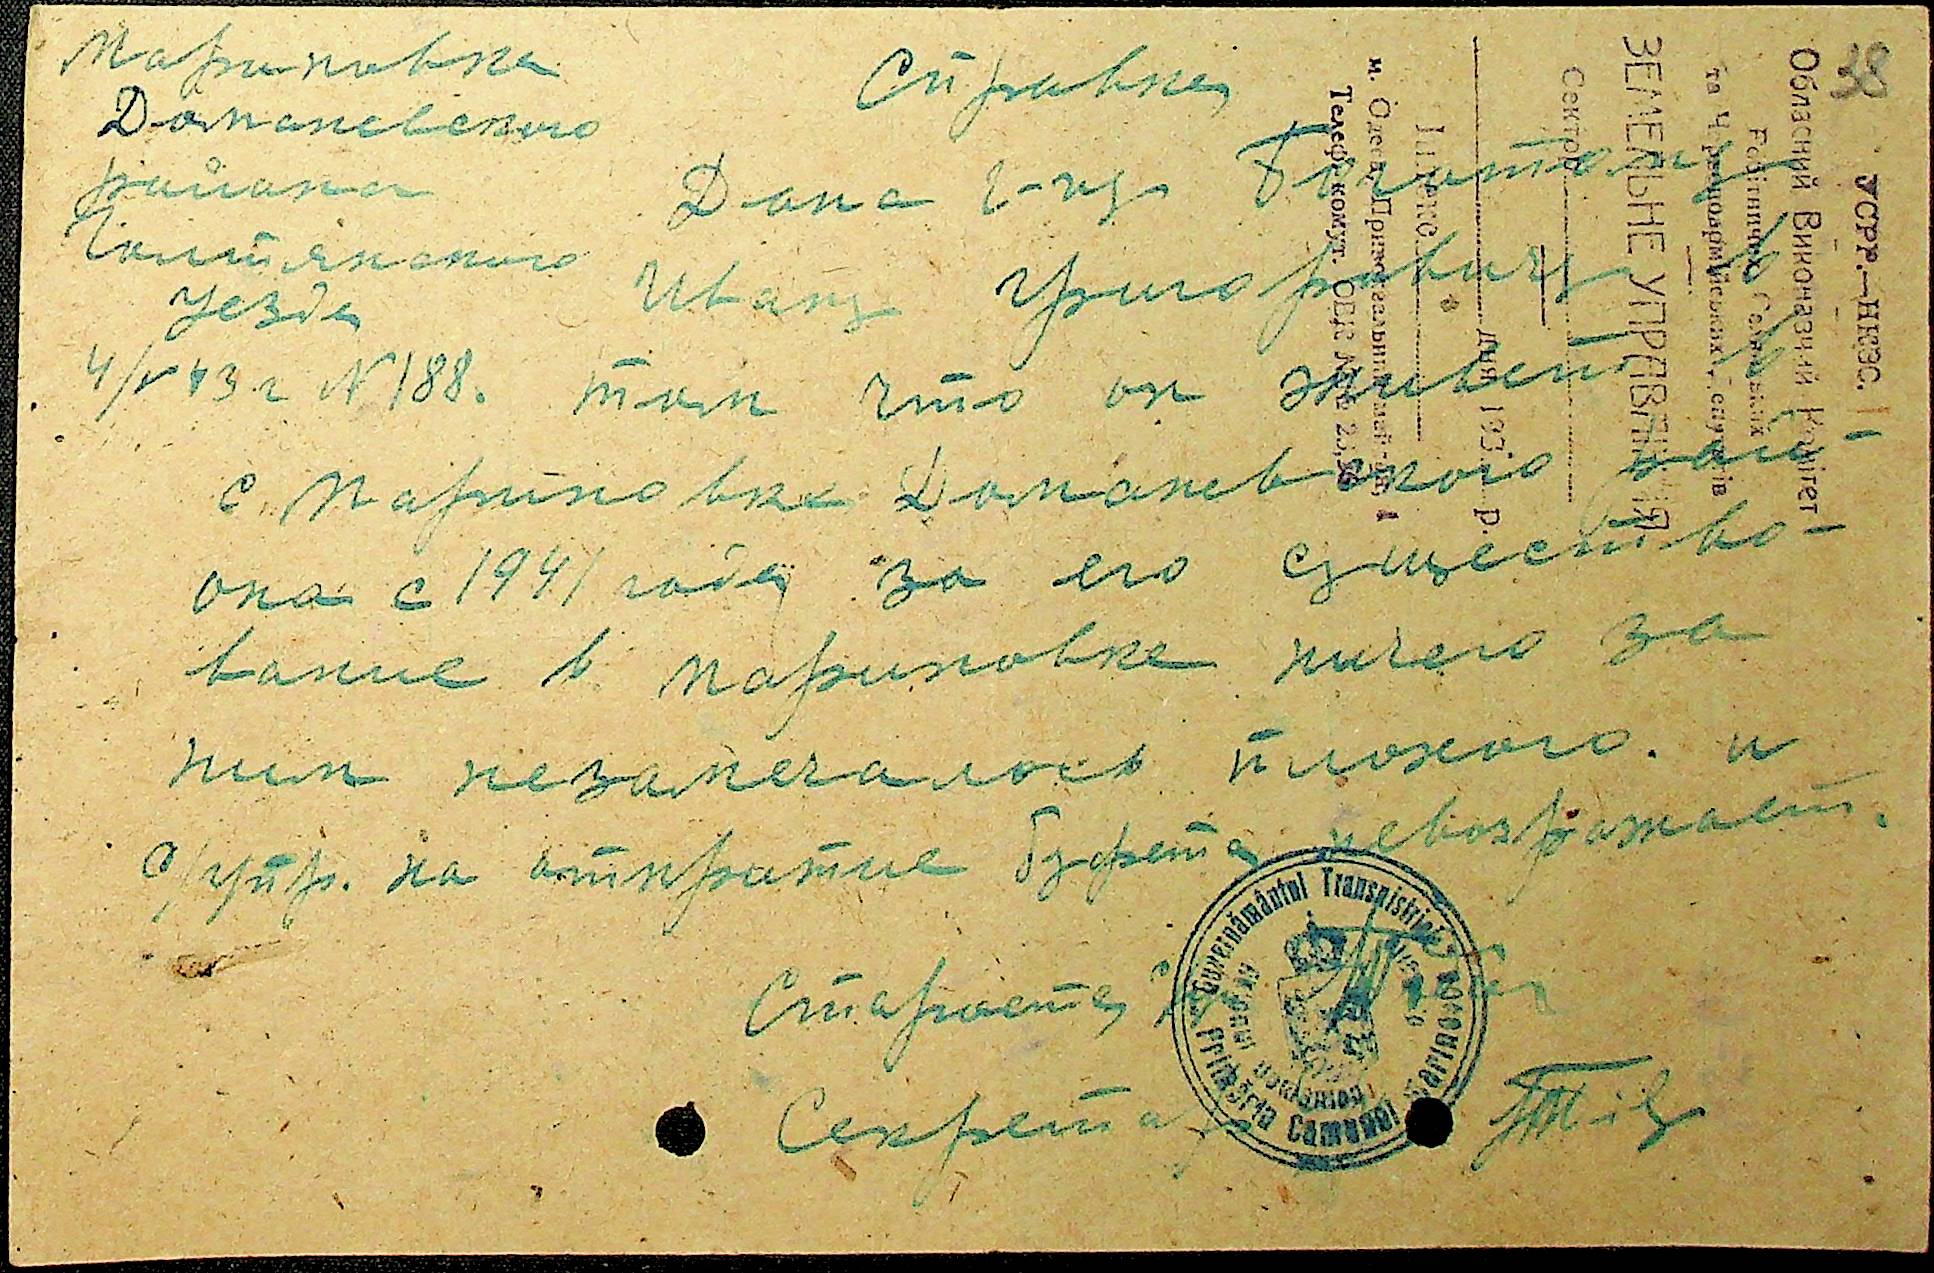 Мариновка
Доманевского
района
Голтянского
уезда
4/V 43 г N 188.
Справка
Дана г-ну Богатому
Ивану Григоровичу в
том что он живет в
с. Мариновке Доманевского рай-
она с 1941 года за его существо-
вание в Мариновке ничего за
ним незамечалось плохого. и
с/упр. на открытие буфета невозражает.
Староста
Секретарь
38
УСРР.—НКЗС.
Обласний Виконавчий Комітет
Робітничих, Селянських
та Червоноармійських Депутатів
ЗЕМЕЛЬНЕ УПРАВЛІННЯ
Сектор
дня 193 р.
м. Одеса,
Телеф. комут. ОВК
Guvernământul Transnistriei
Primăria Comunei Marinovca